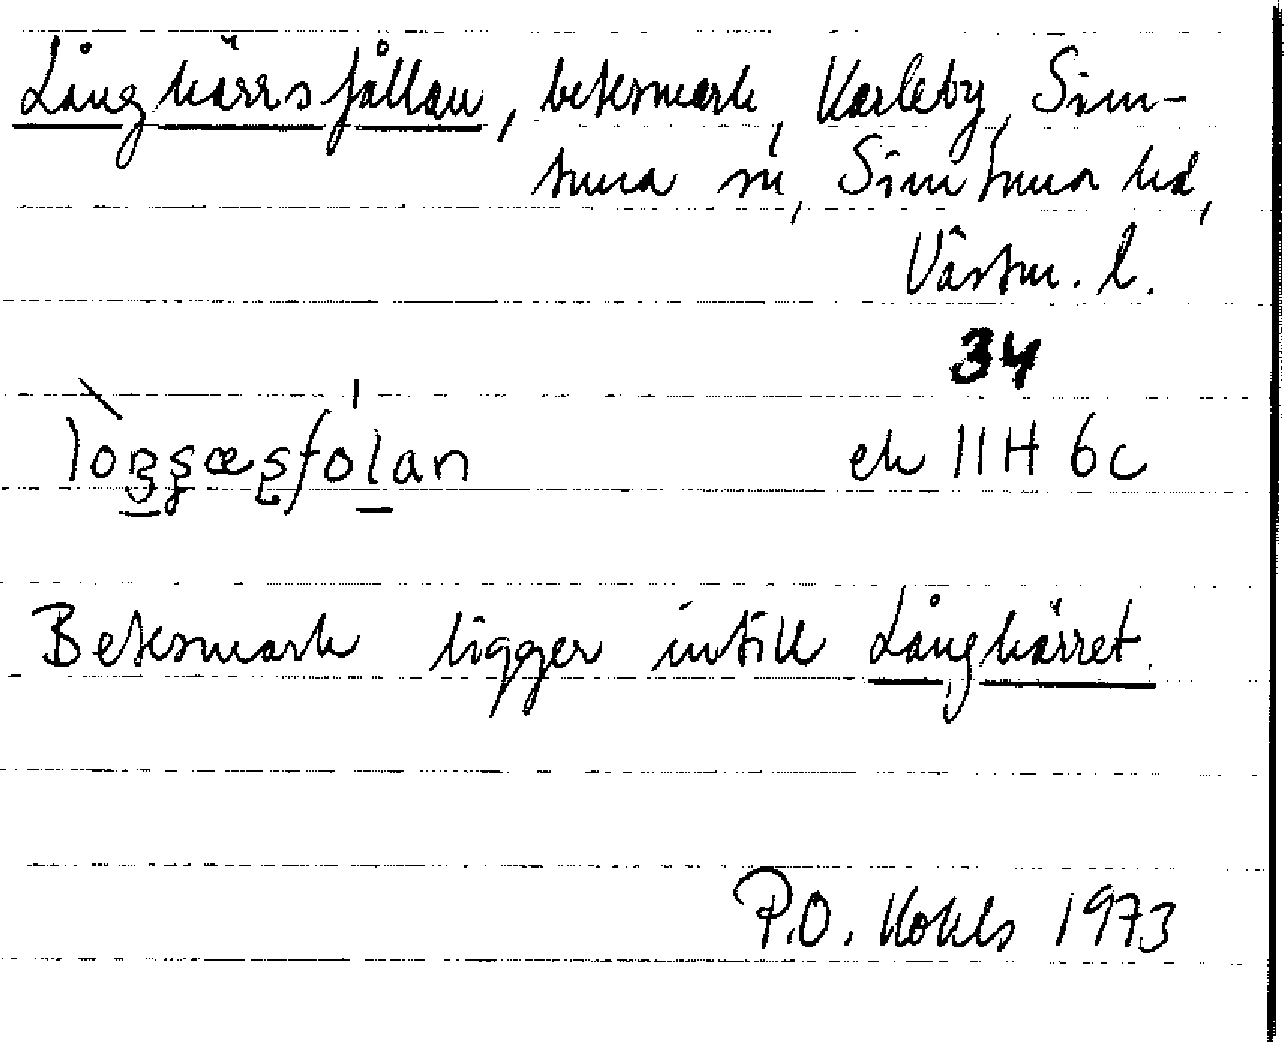 Långkärrsfållan, betesmark, Karleby, Sim-
tuna sn, Simtuna hd,
Västm. l.
34
ek 11H 6c
Betesmark ligger intill Långkärret.
P.O. Kohls 1973